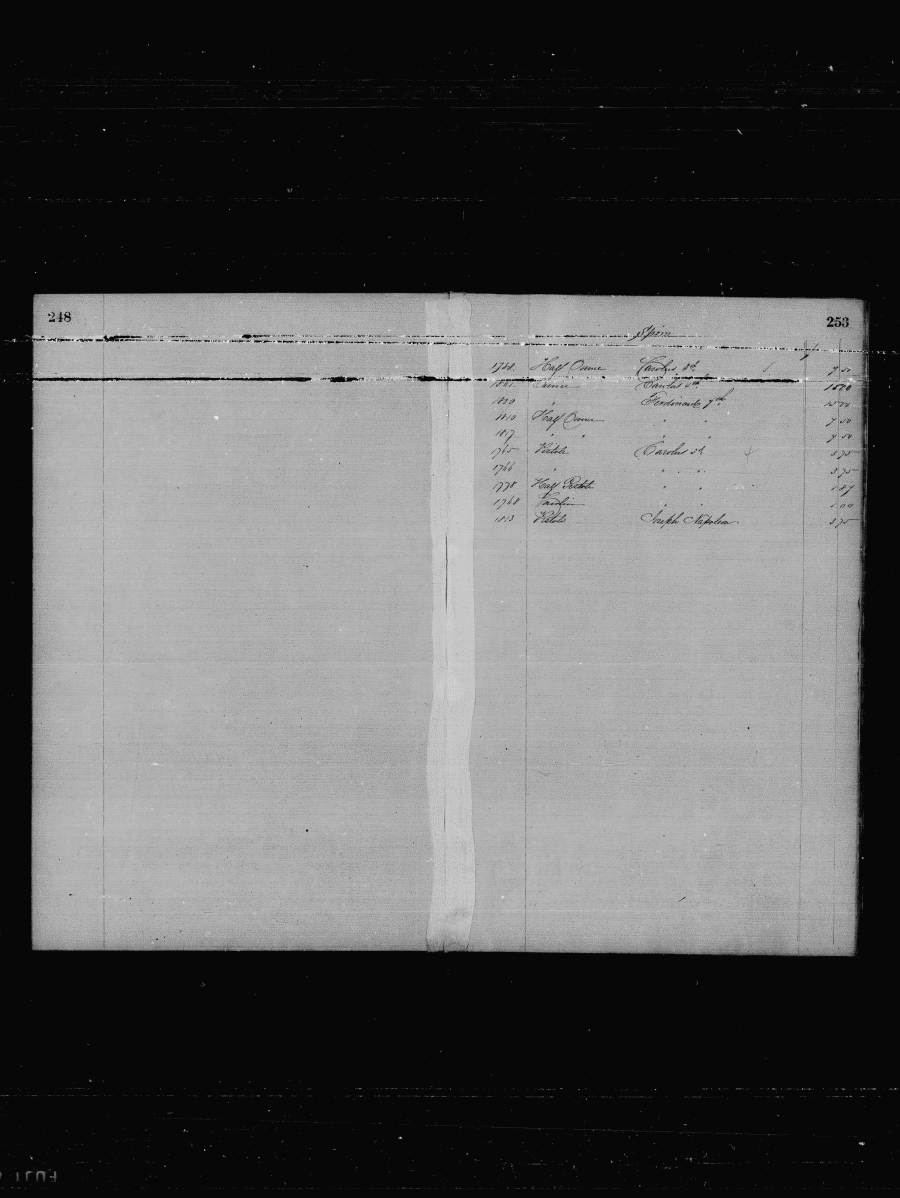 248
253
Spain
1768 Half Ounce Carolus 3d 7 50
1801 Ounce Carolus 4th 15 00
1820 " Ferdinand 7th 15 00
1810 Half Ounce " " 7 50
1817 " " " " 7 50
1765 Pistole Carolus 3d 3 75
1766 " " " " 3 75
1778 Half Pistole " " 1 87
1768 " " 1 00
1813 Pistole Joseph Napoleon 3 75
FUJI